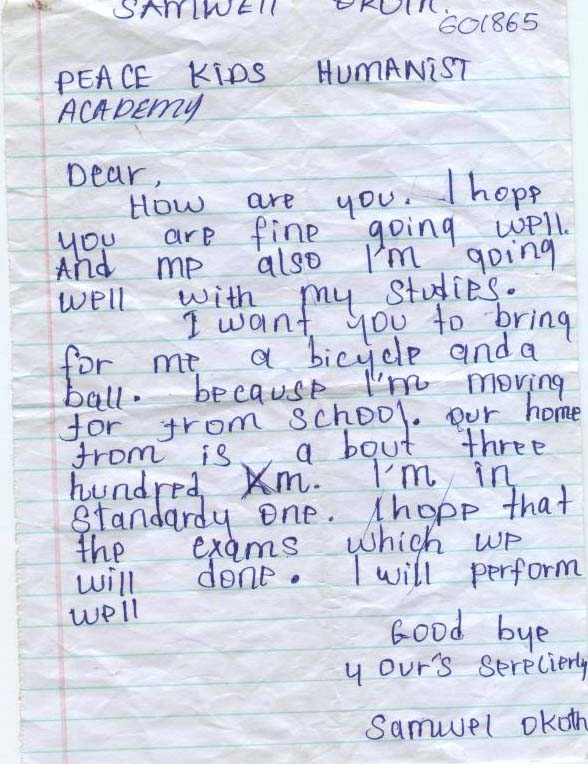 SAMWEll OKOTH.
GO1865
PEACE KIDS HUMANIST
ACADEMY
Dear,
How are you. I hope
you are fine going well.
And me also I'm going
well with my studies.
I want you to bring
for me a bicycle and a
ball. because I'm moving
for from school. our home
from is a bout three
hundred Km. I'm in
Standardy one. I hope that
the exams which we
will done. I will perform
well
Good bye
your's serelierly
Samwel Okoth